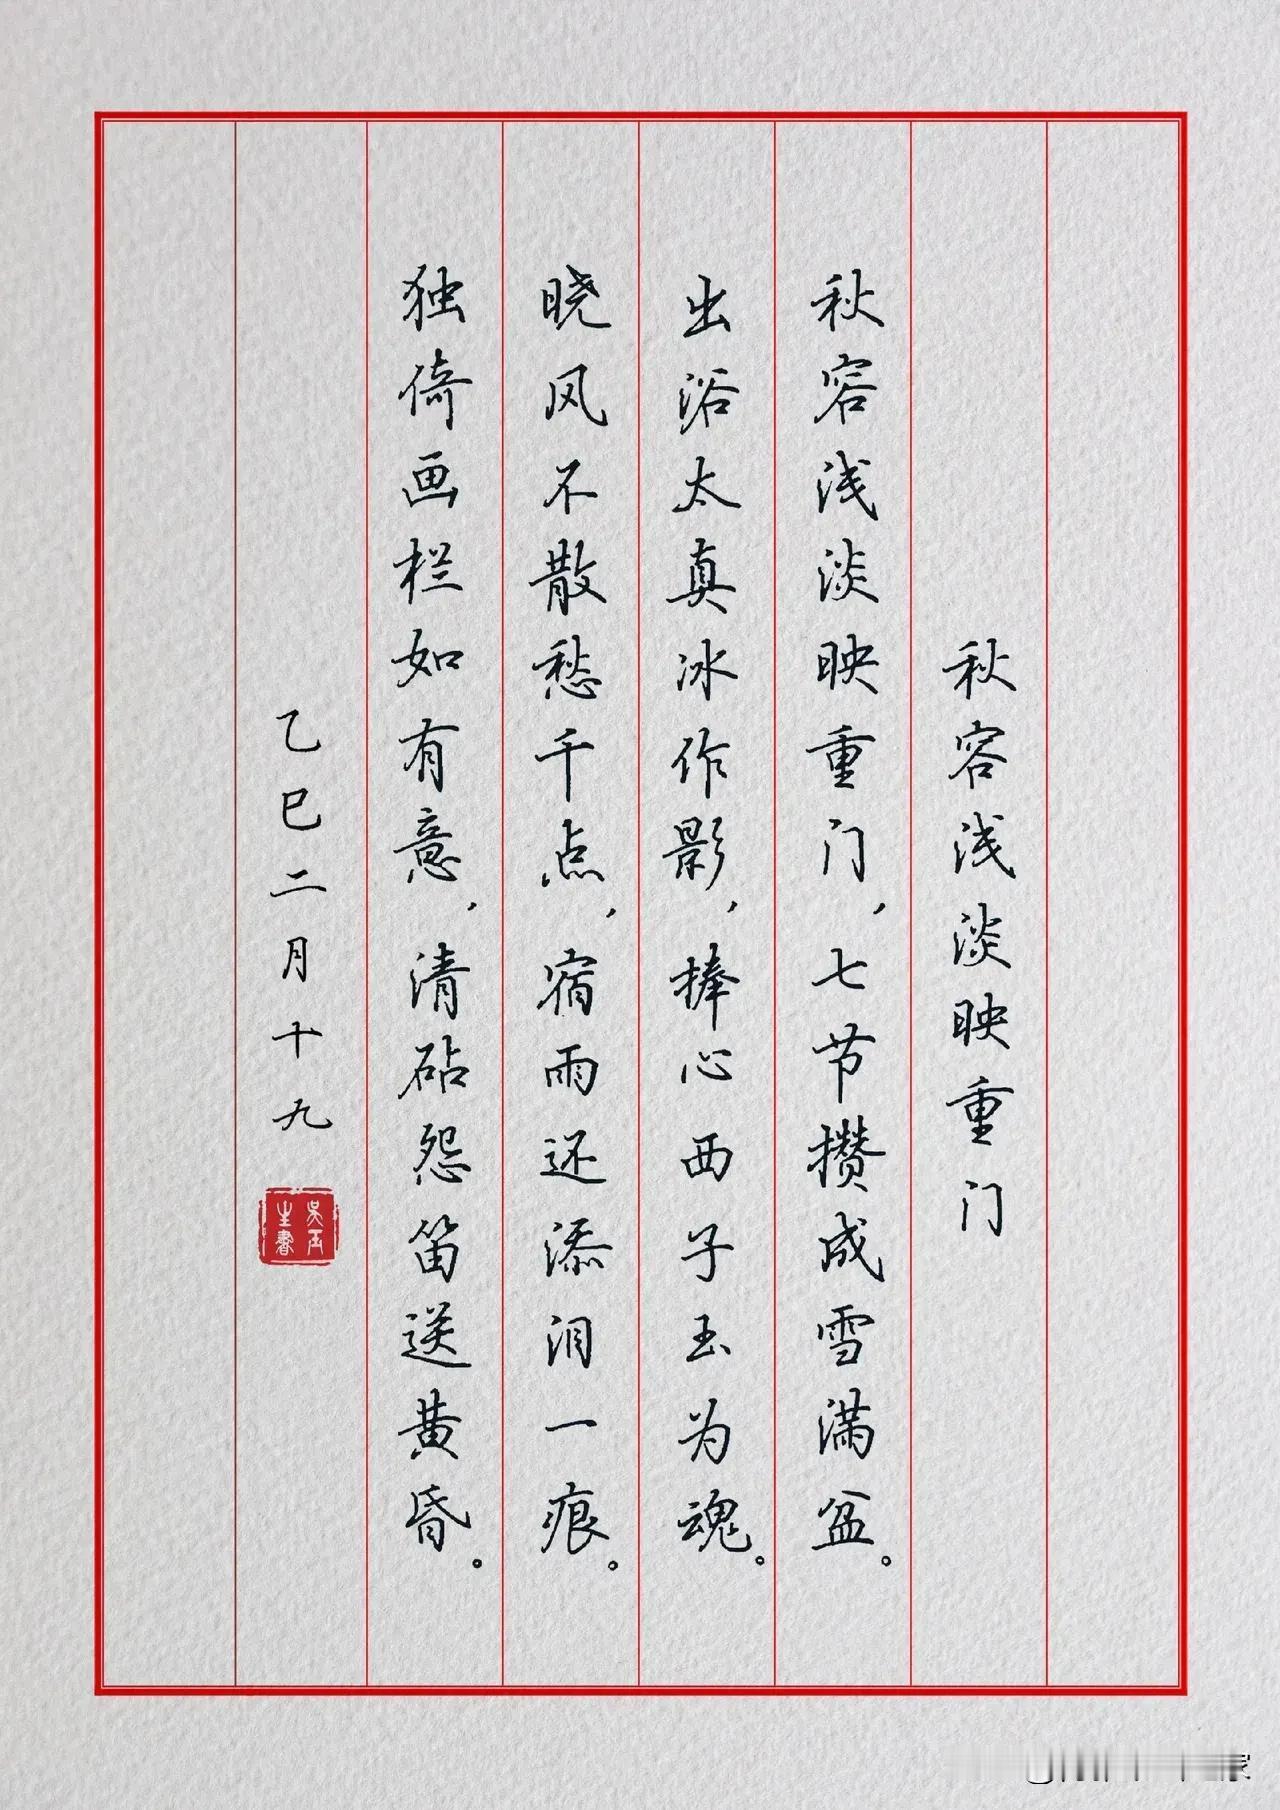 秋容浅淡映重门
秋容浅淡映重门，七节攒成雪满盆。
出浴太真冰作影，捧心西子玉为魂。
晓风不散愁千点，宿雨还添泪一痕。
独倚画栏如有意，清砧怨笛送黄昏。
乙巳二月十九